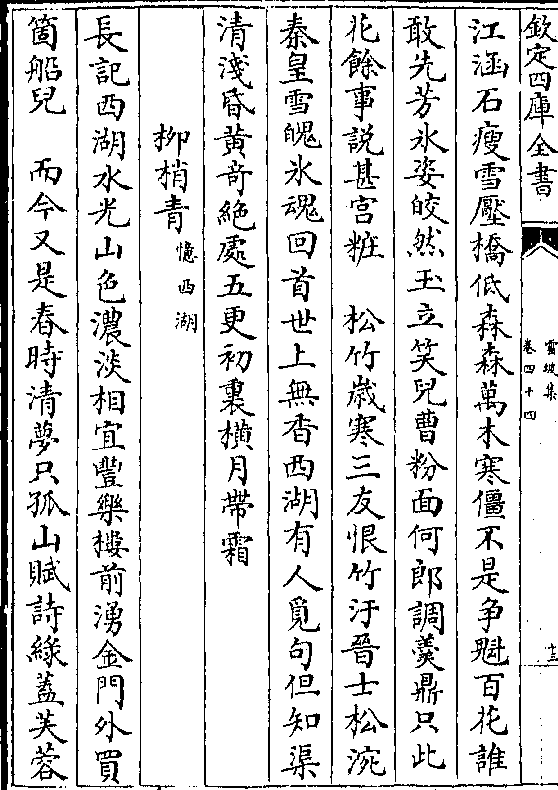 欽定四庫全書
雪坡集
卷四十四
十三
江涵石瘦雪壓橋低森森萬木寒僵不是争魁百花誰
敢先芳氷姿皎然玉立笑兒曹粉面何郎調羮鼎只此
花餘事説甚宫粧　松竹嵗寒三友恨竹汙晉士松涴
秦皇雪魄氷魂回首世上無香西湖有人覓句但知渠
清淺昏黄竒絶處五更初裏横月帶霜
柳梢青憶西湖
長記西湖水光山色濃淡相宜豐樂樓前湧金門外買
箇船兒　而今又是春時清夢只孤山賦詩綠蓋芙蓉